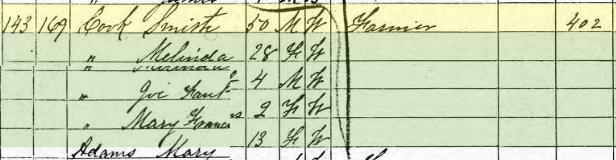 143 169 Cook Smith 50 M W Farmer 402
" Melinda 28 F W
" 4 M W
" Mary Frances 2 F W
Adams Mary 13 F W